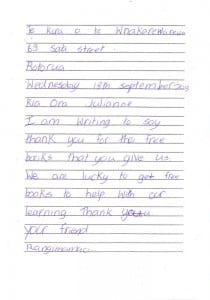 Te Kura o te Whakarewarewa
69 Sala street.
Rotorua
Wednesday 13th september 2013
Kia Ora Julianne
I am writing to say
thank you for the free
books that you give us.
We are lucky to get free
books to help with our
learning Thank you
your friend
Rangimarie